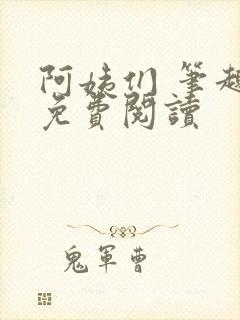 阿姨们 筆趣
免費閱讀
鬼軍曹